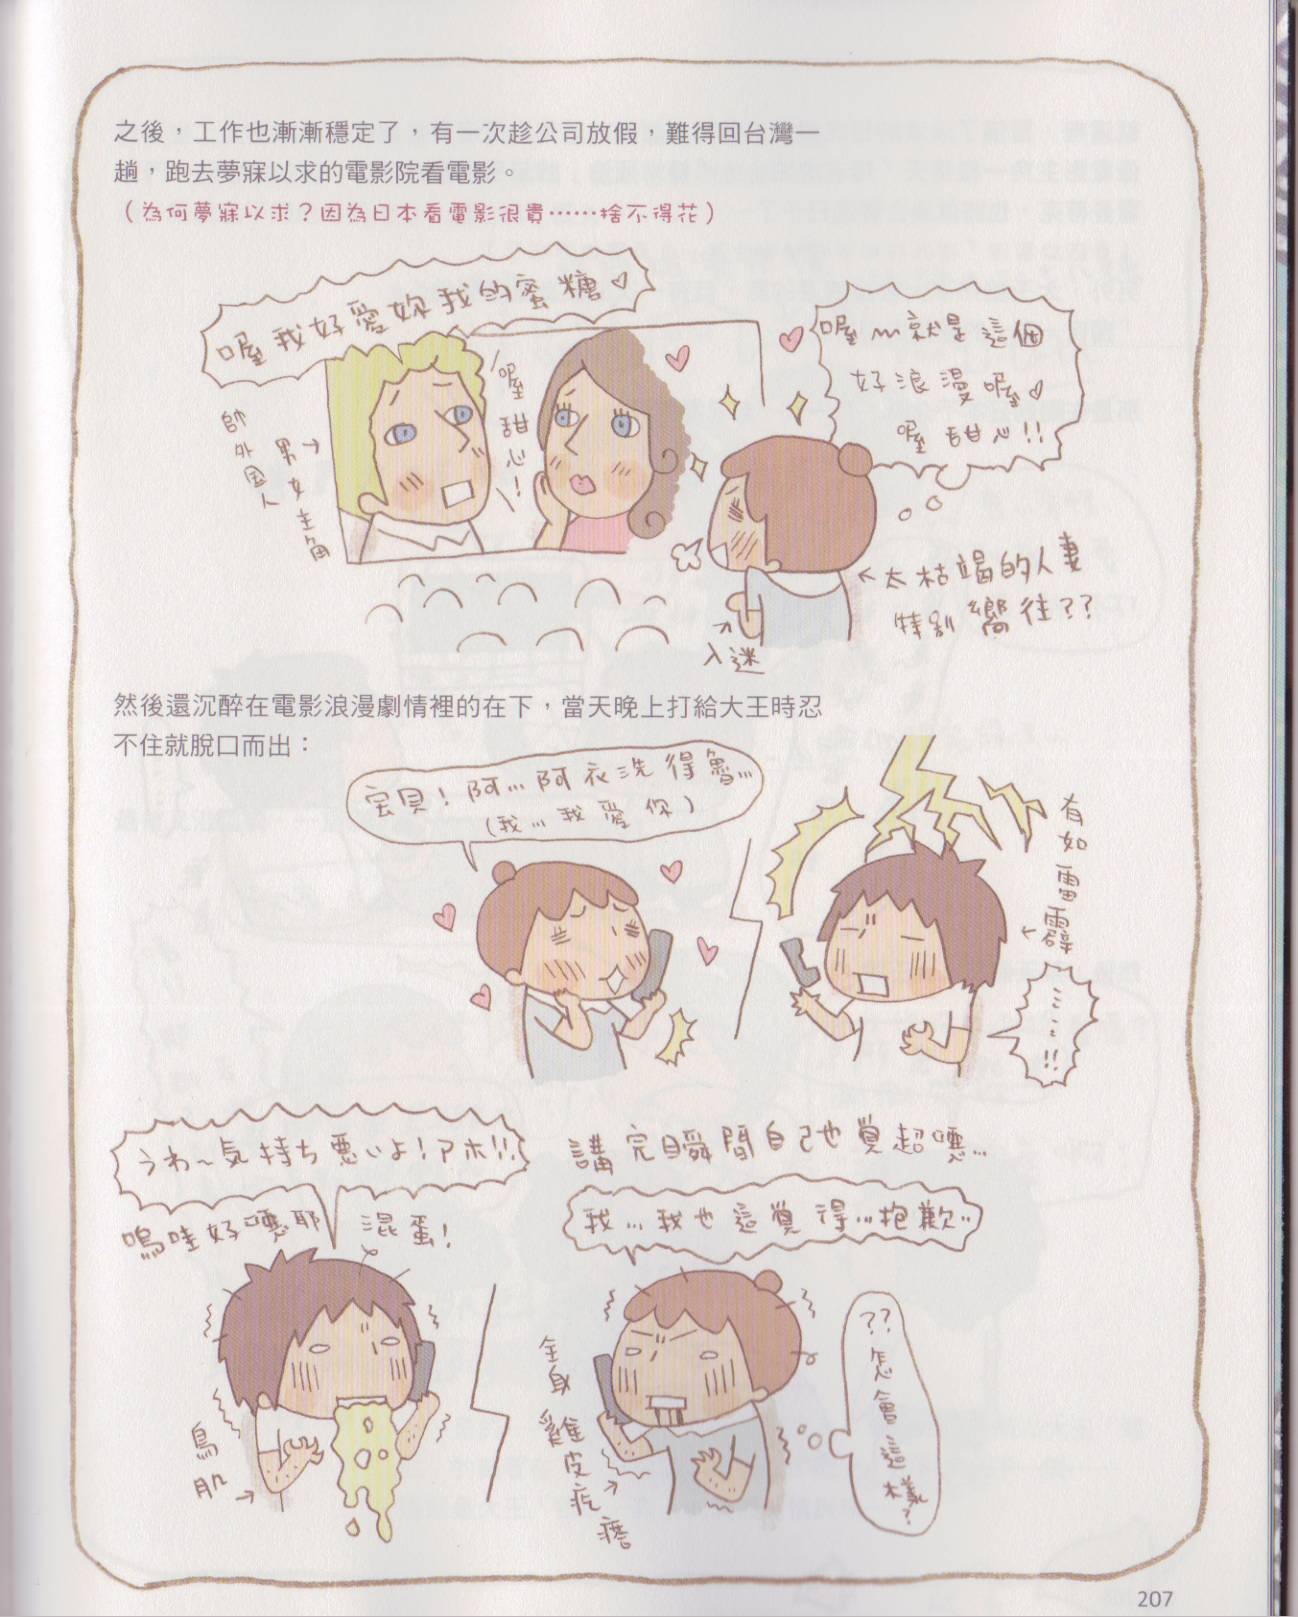 之後，工作也漸漸穩定了，有一次趁公司放假，難得回台灣一
趟，跑去夢寐以求的電影院看電影。
（為何夢寐以求？因為日本看電影很貴……捨不得花）
喔我好愛妳我的蜜糖♡
喔甜心！
帥外國人
男女主角
喔~就是這個
好浪漫喔♡
喔甜心!!
←太枯竭的人妻
特別嚮往??
入迷
然後還沉醉在電影浪漫劇情裡的在下，當天晚上打給大王時忍
不住就脫口而出：
宝貝！阿…阿衣洗得魯…
（我…我愛你）
有如雷霹
……!!
うわ~気持ち悪いよ！アホ!!
嗚哇好噁耶 混蛋！
鳥肌
講完瞬間自己也覺超噁…
我…我也這覺得…抱歉…
全身雞皮疙瘩
??怎會這樣？
207